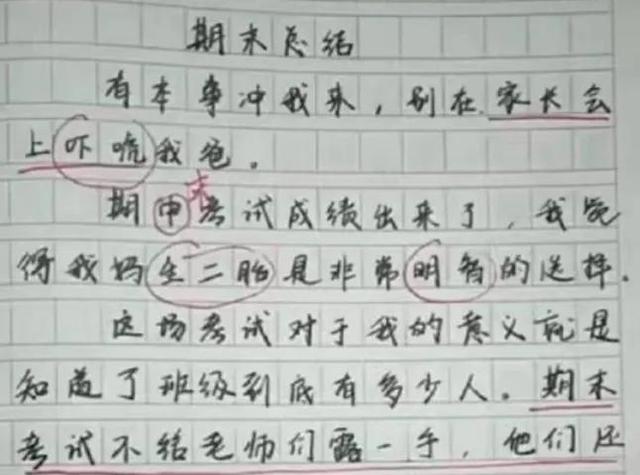 期末总结
有本事冲我来，别在家长会
上吓唬我爸。
末
期中考试成绩出来了，我觉
得我妈生二胎是非常明智的选择.
这场考试对于我的意义就是
知道了班级到底有多少人。期末
考试不给老师们露一手，他们还